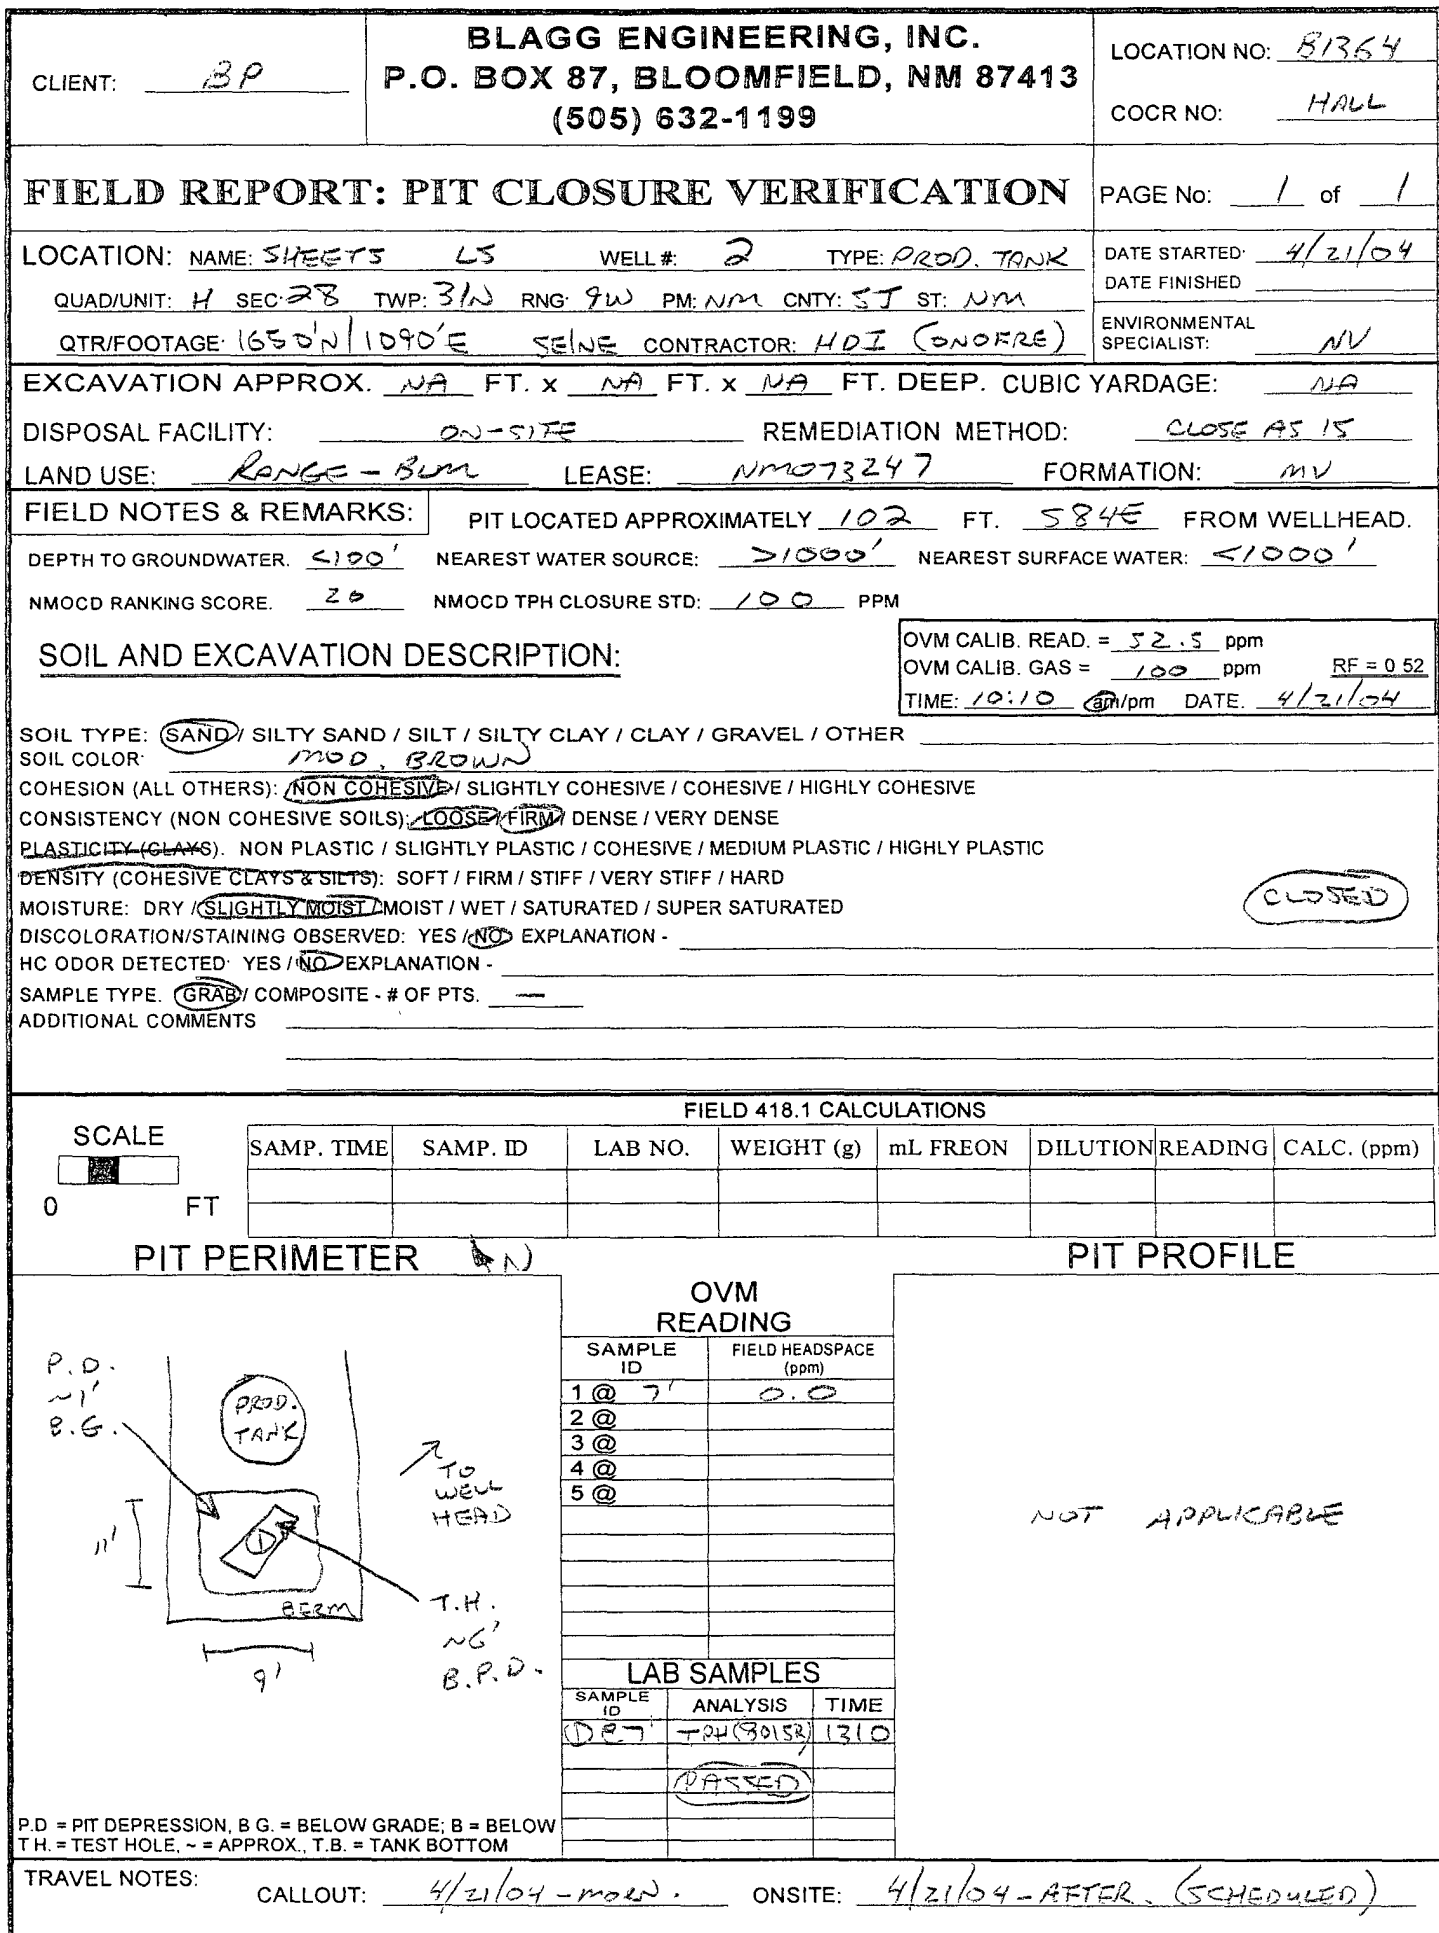 CLIENT: BP
BLAGG ENGINEERING, INC.
P.O. BOX 87, BLOOMFIELD, NM 87413
(505) 632-1199
LOCATION NO: B1364
COCR NO: HALL
FIELD REPORT: PIT CLOSURE VERIFICATION
PAGE No: 1 of 1
LOCATION: NAME: SHEETS LS WELL #: 2 TYPE: PROD. TANK
QUAD/UNIT: H SEC: 28 TWP: 31N RNG: 9W PM: NM CNTY: SJ ST: NM
QTR/FOOTAGE: 1650'N/1090'E SE/NE CONTRACTOR: HDI (ONOFRE)
DATE STARTED: 4/21/04
DATE FINISHED
ENVIRONMENTAL SPECIALIST: NV
EXCAVATION APPROX. NA FT. x NA FT. x NA FT. DEEP. CUBIC YARDAGE: NA
DISPOSAL FACILITY: ON-SITE REMEDIATION METHOD: CLOSE AS IS
LAND USE: RANGE - BLM LEASE: NM073247 FORMATION: MV
FIELD NOTES & REMARKS: PIT LOCATED APPROXIMATELY 102 FT. S84E FROM WELLHEAD.
DEPTH TO GROUNDWATER. <100' NEAREST WATER SOURCE: >1000' NEAREST SURFACE WATER: <1000'
NMOCD RANKING SCORE. 20 NMOCD TPH CLOSURE STD: 100 PPM
SOIL AND EXCAVATION DESCRIPTION:
OVM CALIB. READ. = 52.5 ppm
OVM CALIB. GAS = 100 ppm RF = 0 52
TIME: 10:10 am/pm DATE. 4/21/04
SOIL TYPE: SAND / SILTY SAND / SILT / SILTY CLAY / CLAY / GRAVEL / OTHER
SOIL COLOR: MOD. BROWN
COHESION (ALL OTHERS): NON COHESIVE / SLIGHTLY COHESIVE / COHESIVE / HIGHLY COHESIVE
CONSISTENCY (NON COHESIVE SOILS): LOOSE / FIRM / DENSE / VERY DENSE
PLASTICITY (CLAYS). NON PLASTIC / SLIGHTLY PLASTIC / COHESIVE / MEDIUM PLASTIC / HIGHLY PLASTIC
DENSITY (COHESIVE CLAYS & SILTS): SOFT / FIRM / STIFF / VERY STIFF / HARD
MOISTURE: DRY / SLIGHTLY MOIST / MOIST / WET / SATURATED / SUPER SATURATED
CLOSED
DISCOLORATION/STAINING OBSERVED: YES / NO EXPLANATION -
HC ODOR DETECTED: YES / NO EXPLANATION -
SAMPLE TYPE. GRAB / COMPOSITE - # OF PTS. —
ADDITIONAL COMMENTS
FIELD 418.1 CALCULATIONS
SCALE
0 FT
SAMP. TIME SAMP. ID LAB NO. WEIGHT (g) mL FREON DILUTION READING CALC. (ppm)
PIT PERIMETER N
P.D.
~1'
B.G.
PROD.
TANK
TO
WELL
HEAD
11'
1
BERM
9'
T.H.
~6'
B.P.D.
P.D = PIT DEPRESSION, B G. = BELOW GRADE; B = BELOW
T H. = TEST HOLE, ~ = APPROX., T.B. = TANK BOTTOM
OVM
READING
SAMPLE ID FIELD HEADSPACE (ppm)
1 @ 7' 0.0
2 @
3 @
4 @
5 @
LAB SAMPLES
SAMPLE ID ANALYSIS TIME
1 @ 7' TPH (8015B) 1310
PASSED
PIT PROFILE
NOT APPLICABLE
TRAVEL NOTES:
CALLOUT: 4/21/04 - MORN. ONSITE: 4/21/04 - AFTER. (SCHEDULED)